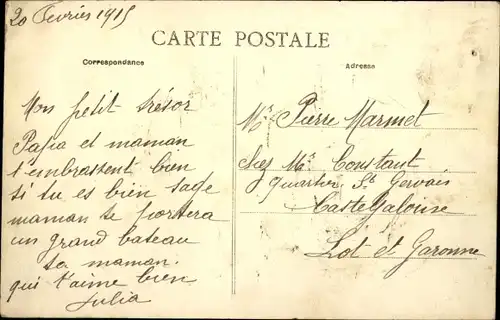 20 Fevrier 1915
CARTE POSTALE
Correspondance
Adresse
Mon petit trésor
Papa et maman
t'embrassent bien
si tu es bien sage
maman te portera
un grand bateau
ta maman
qui t'aime bien
Julia
Mr Pierre Marmet
chez Mr Constant
quartier St Gervais
Castelgaloise
Lot et Garonne